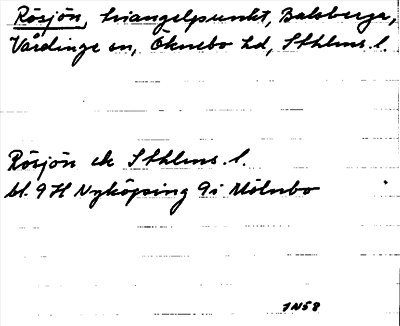 Rösjön, triangelpunkt, Balsberga,
Vårdinge sn, Öknebo hd, Sthlms l.
Rösjön ek Sthlms l.
bl. 9 H Nyköping 9i Mölnbo
JN58